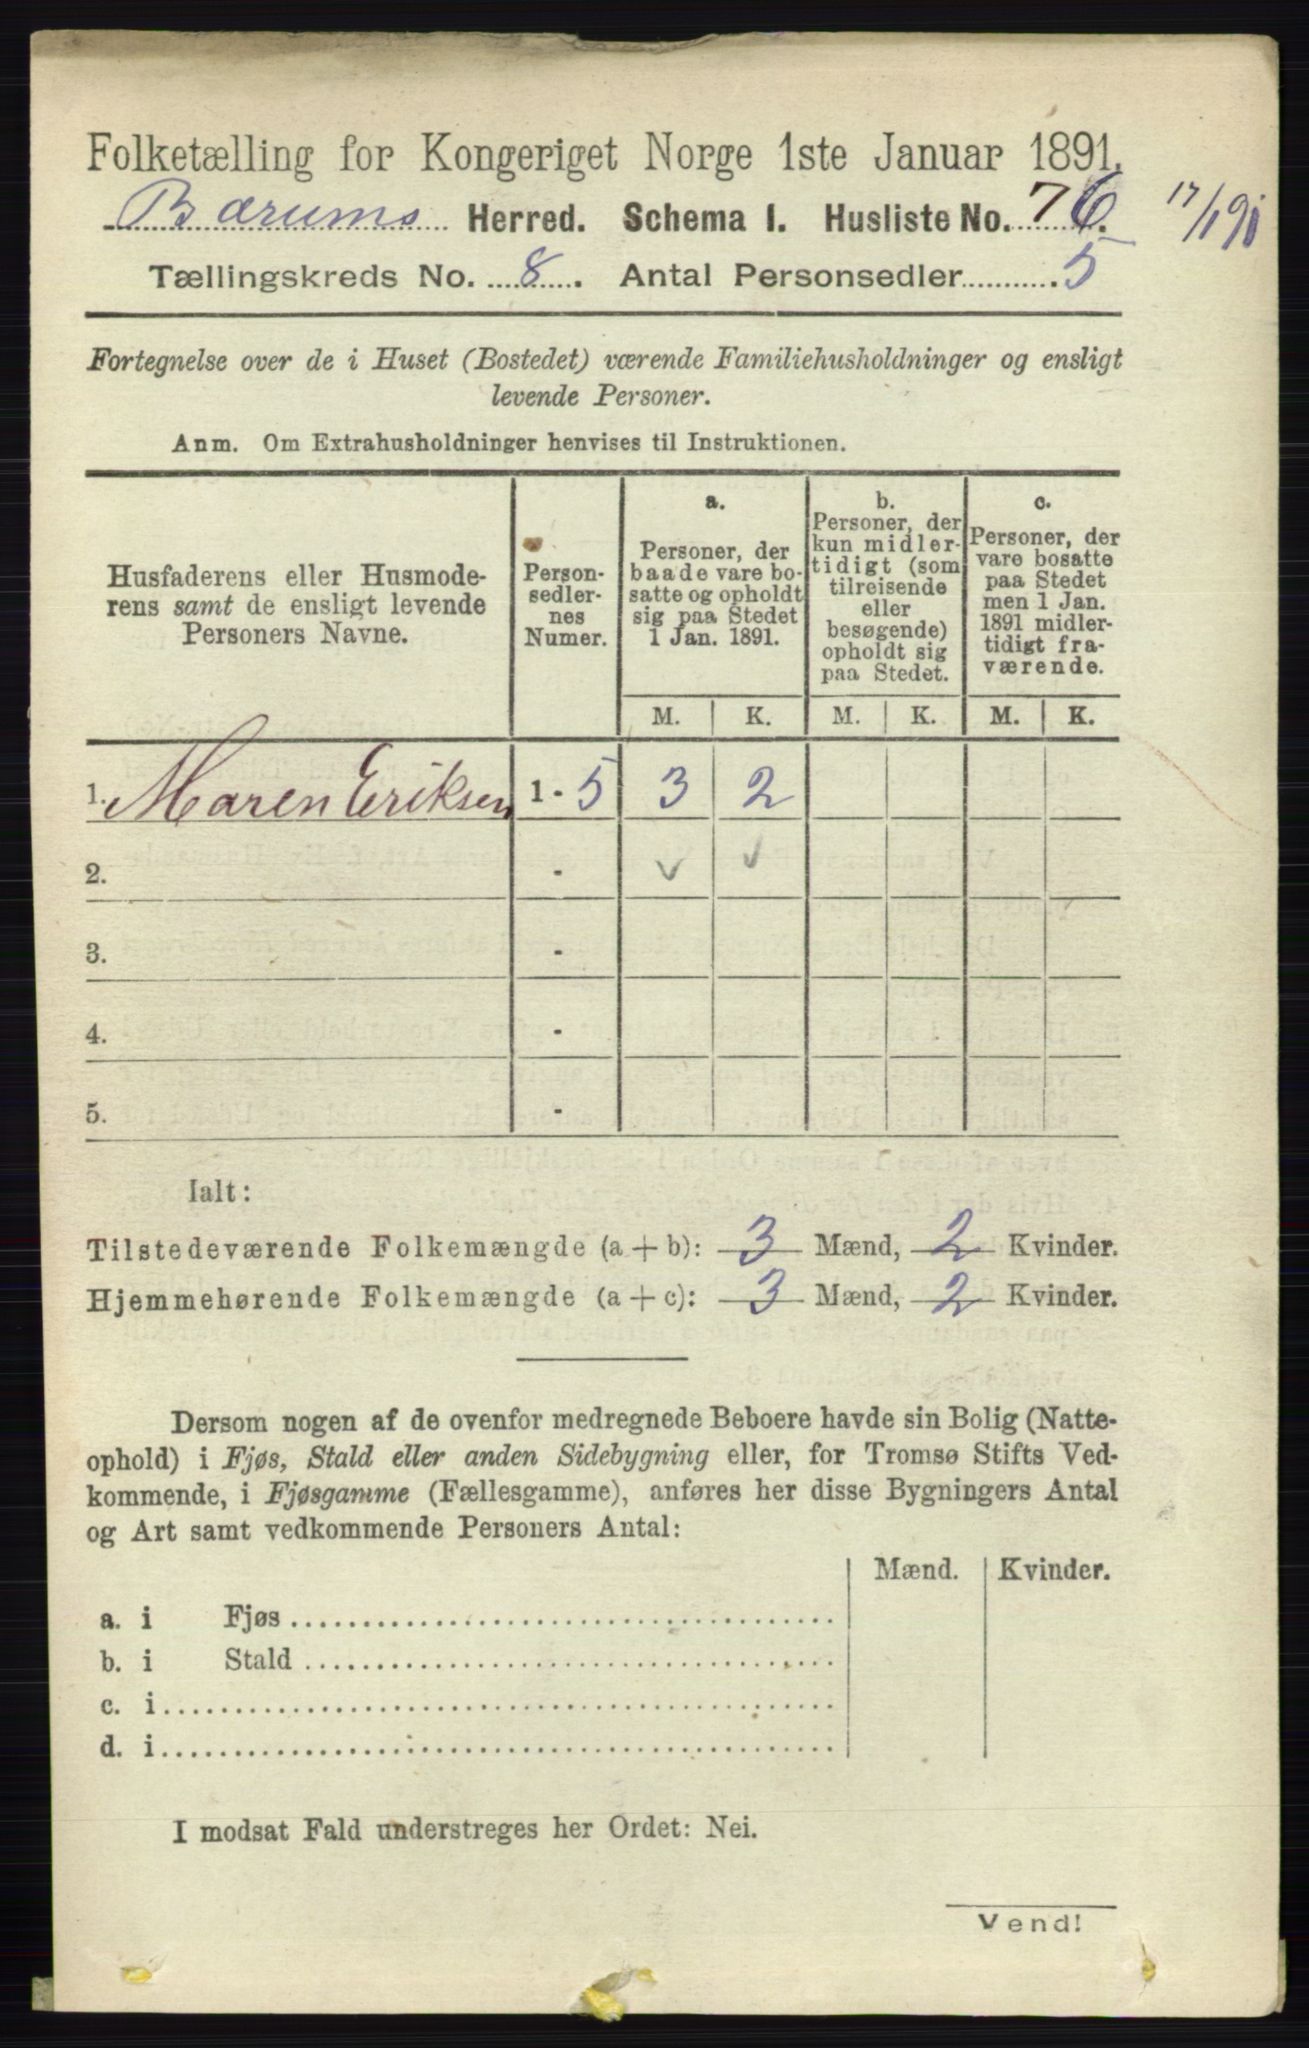 Folketælling for Kongeriget Norge 1ste Januar 1891.
Bærums Herred. Schema I. Husliste No. 76.
Tællingskreds No. 8. Antal Personsedler 5
Fortegnelse over de i Huset (Bostedet) værende Familiehusholdninger og ensligt
levende Personer.
Anm. Om Extrahusholdninger henvises til Instruktionen.
Husfaderens eller Husmode-
rens samt de ensligt levende
Personers Navne.
Person-
sedler-
nes
Numer.
a.
Personer, der
baade vare bo-
satte og opholdt
sig paa Stedet
1 Jan. 1891.
b.
Personer, der
kun midler-
tidigt (som
tilreisende
eller
besøgende)
opholdt sig
paa Stedet.
c.
Personer, der
vare bosatte
paa Stedet
men 1 Jan.
1891 midler-
tidigt fra-
værende.
M. K. M. K. M. K.
1. Maren Eriksen 1 - 5 3 2
2. -
3. -
4. -
5. -
Ialt:
Tilstedeværende Folkemængde (a + b): 3 Mænd, 2 Kvinder.
Hjemmehørende Folkemængde (a + c): 3 Mænd, 2 Kvinder.
Dersom nogen af de ovenfor medregnede Beboere havde sin Bolig (Natte-
ophold) i Fjøs, Stald eller anden Sidebygning eller, for Tromsø Stifts Ved-
kommende, i Fjøsgamme (Fællesgamme), anføres her disse Bygningers Antal
og Art samt vedkommende Personers Antal:
Mænd. Kvinder.
a. i Fjøs
b. i Stald
c. i
d. i
I modsat Fald understreges her Ordet: Nei.
Vend!